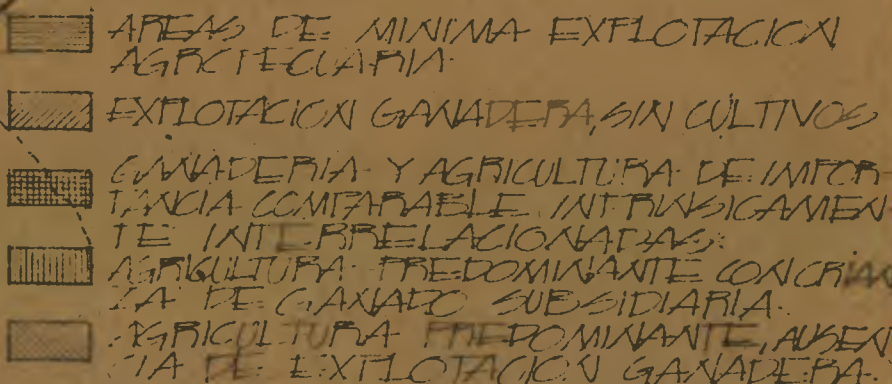 AREAS DE MINIMA EXPLOTACION
AGROPECUARIA.
EXPLOTACION GANADERA, SIN CULTIVOS
GANADERIA Y AGRICULTURA DE IMPOR-
TANCIA COMPARABLE INTRINSICAMEN-
TE INTERRELACIONADAS.
AGRICULTURA PREDOMINANTE CON CRIAN
ZA DE GANADO SUBSIDIARIA.
AGRICULTURA PREDOMINANTE, AUSEN
CIA DE EXPLOTACION GANADERA.